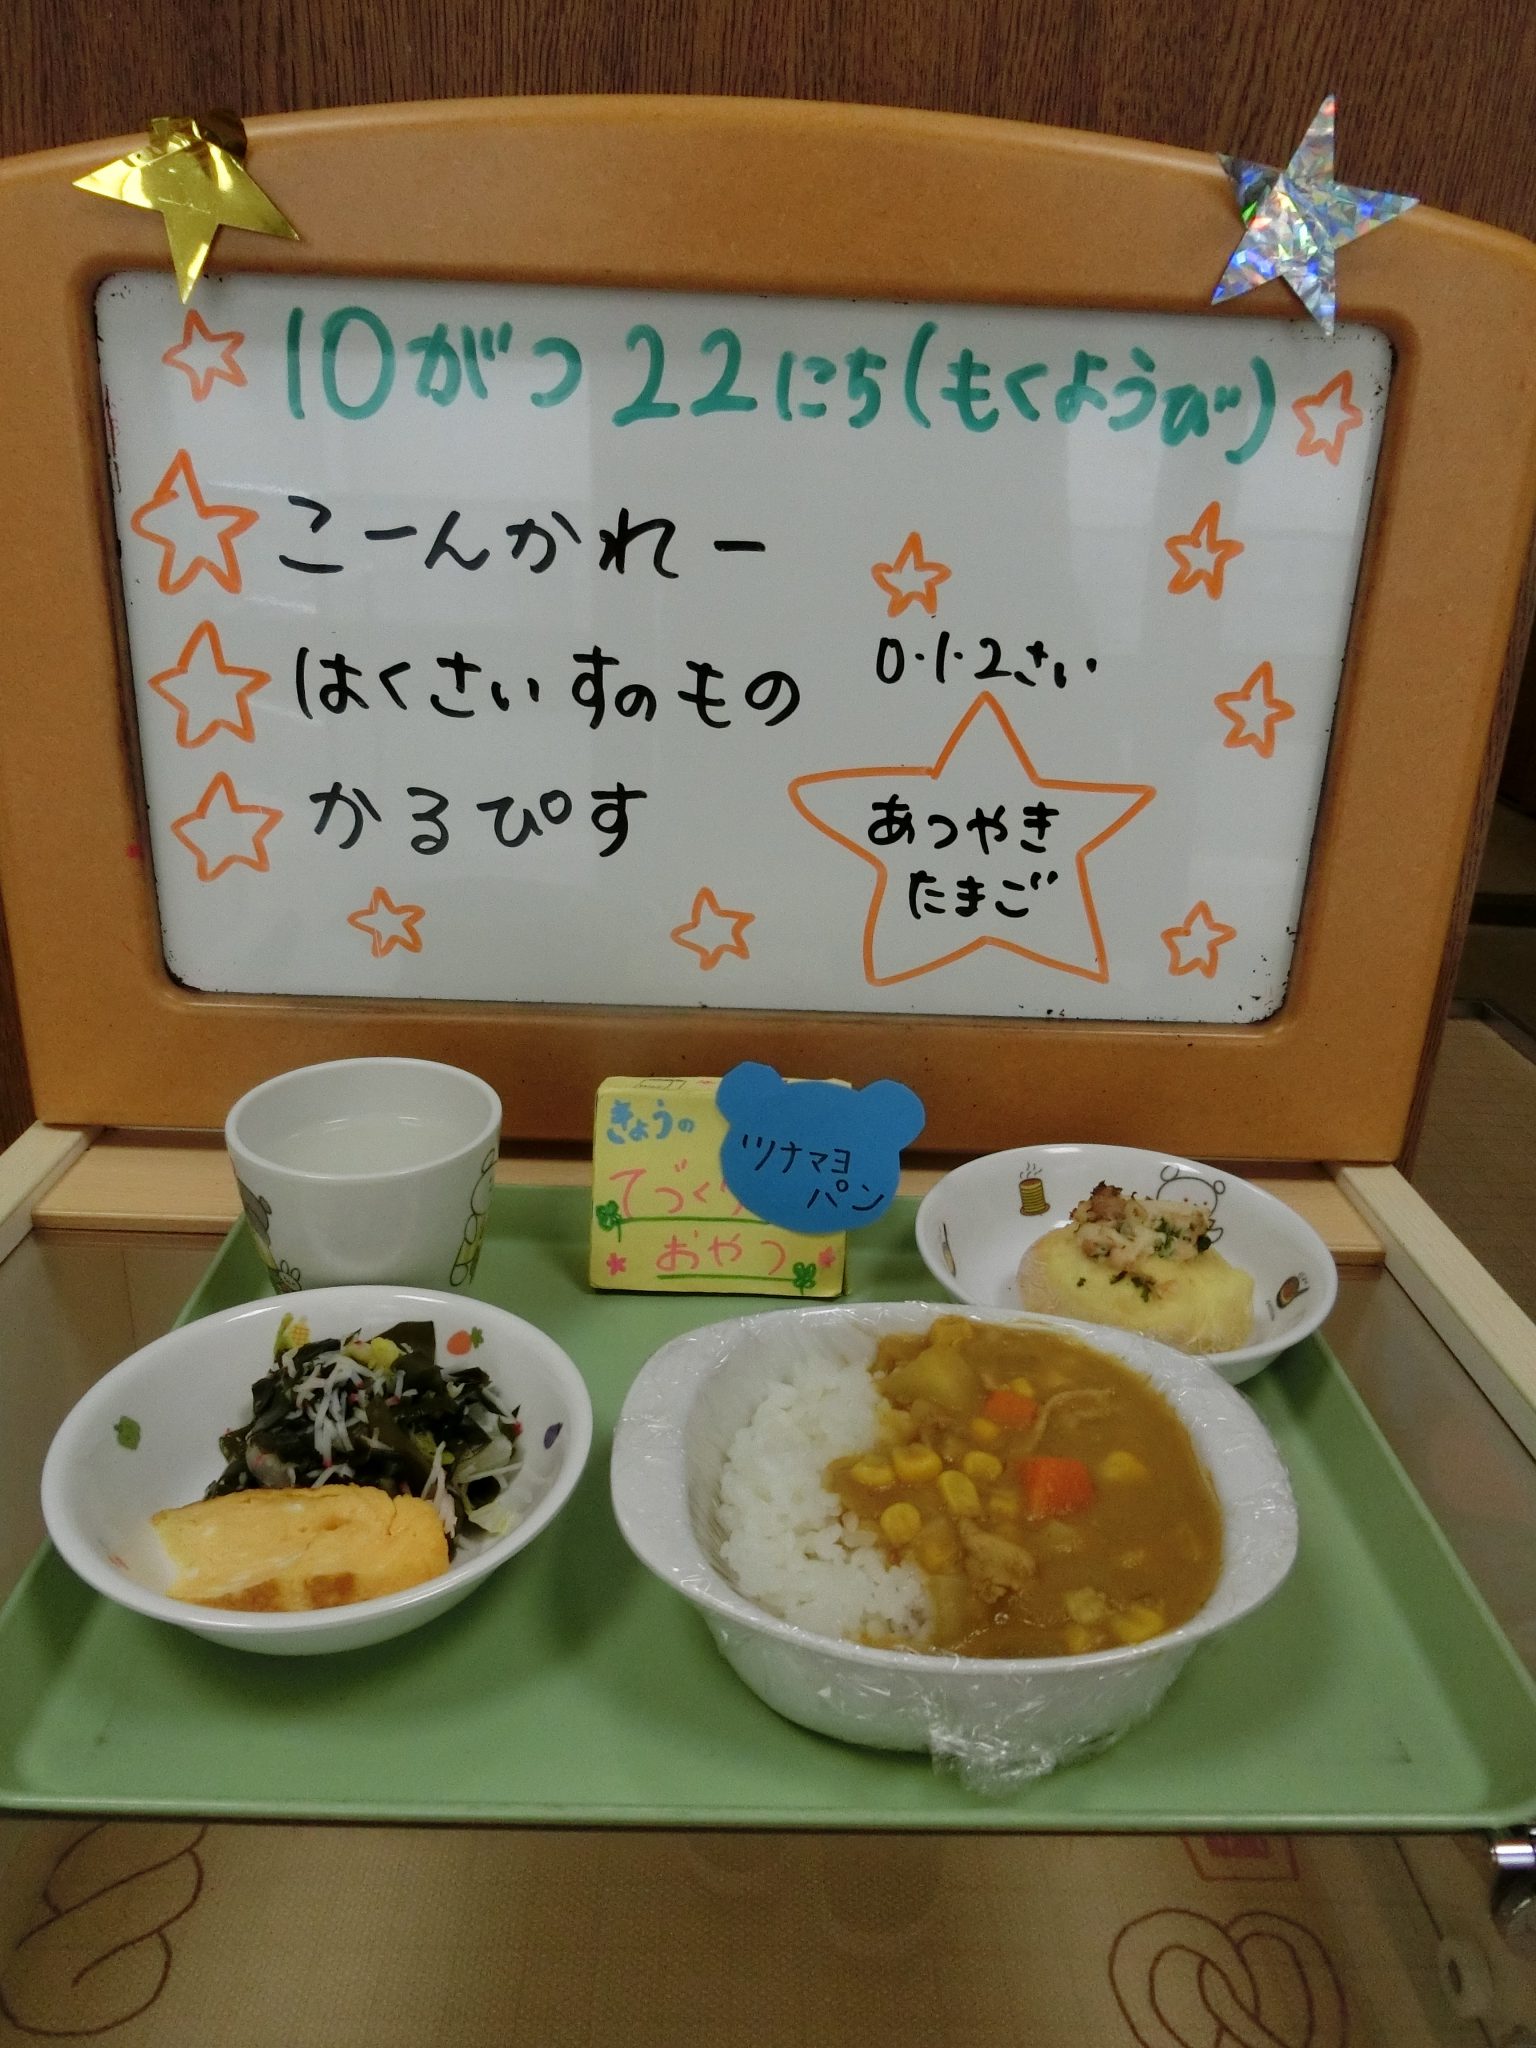 10がつ 22にち(もくようび)
こーんかれー
はくさいすのもの
かるぴす
0・1・2さい
あつやき
たまご
きょうの
てづくり
おやつ
ツナマヨ
パン